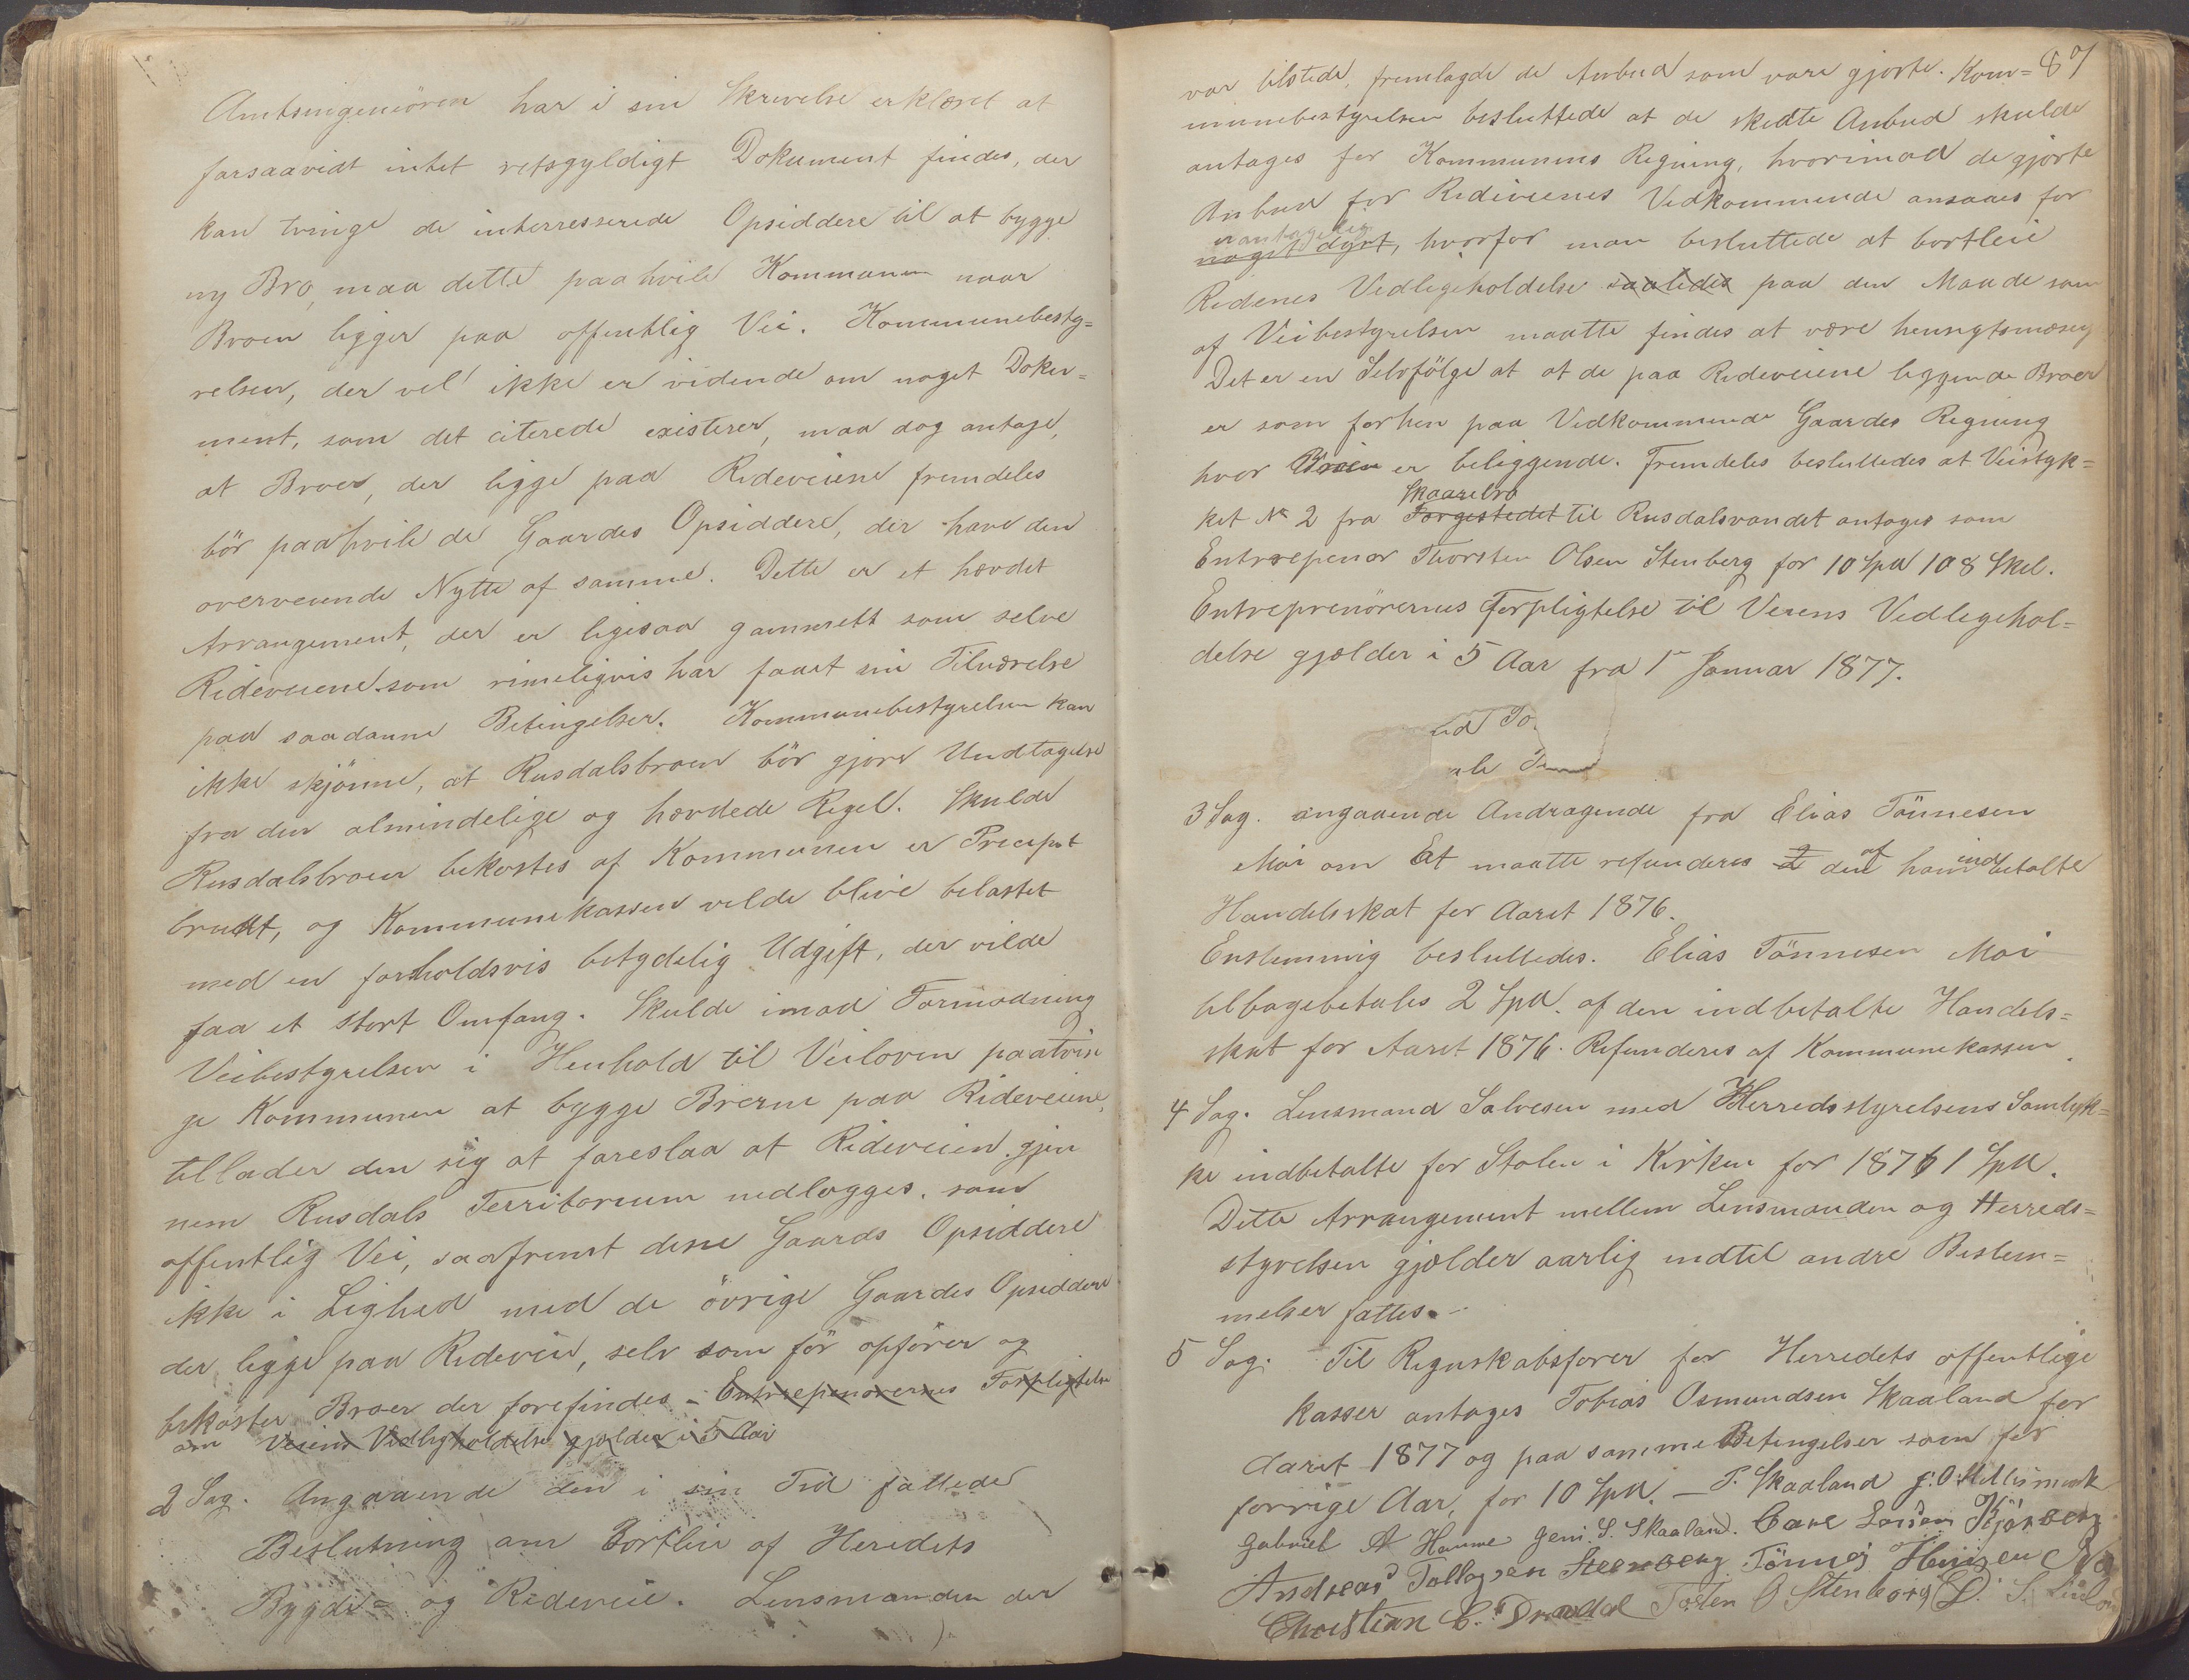 Amtsingeniören har i sin Skrivelse erklæret at
forsaavidt intet retsgyldigt Dokument findes, der
kan tvinge de interresserede Opsiddere til at bygge
ny Bro, maa dette paahvile Kommunen naar
Broen ligger paa offentlig Vei. Kommunebesty=
relsen, der vel ikke er vidende om noget Doku=
ment, som det citerede existerer, maa dog antage,
at Broer, der ligge paa Rideveiene fremdeles
bör paahvile de Gaardes Opsiddere, der have den
overveiende Nytte af samme. Dette er et hævdet
Arrangement, der er ligesaa gammelt som selve
Rideveiene som rimeligvis har faaet sin Tilværelse
paa saadanne Betingelser. Kommunebestyrelsen kan
ikke skjönne, at Rusdalsbroen bör gjöre Undtagelse
fra den almindelige og hævdede Regel. Skulde
Rusdalsbroen bekostes af Kommunen er Precept
brudt, og Kommunekassen vilde blive belastet
med en forholdsvis betydelig Udgift, der vilde
faa et stort Omfang. Skulde imod Formodning
Veibestyrelsen i Henhold til Veiloven paatvin
ge Kommunen at bygge Broerne paa Rideveiene,
tillader den sig at foreslaa at Rideveien gjen
nem Rusdals Territorium nedlægges, som
offentlig Vei, saafremt disse Gaards Opsiddere
ikke i Lighed med de övrige Gaardes Opsiddere
der ligge paa Rideveie, selv som för opförer og
bekoster Broer der forefindes - Entrepenörernes Forpligtelse
om Veiens Vedligholdelse gjelder i 5 Aar
2 Sag. Angaaende den i sin Tid fattede
Beslutning om Bortleie af Heredets
Bygde- og Rideveie. Lensmanden der
87
var tilstede, fremlagde de Anbud som vare gjorte. Kom=
munebestyrelsen besluttede at de skedte Anbud skulde
antages for Kommunens Regning, hvorimod de gjorte
Anbud for Rideveienes Vedkommende ansaaes for
uantagelig
noget dyrt, hvorfor man besluttede at bortleie
Redenes Vedligeholdelse saaledes paa den Maade som
af Veibestyrelsen maatte findes at være hensigtsmæsig
Det er en Selvfölge at at de paa Rideveiene liggende Broer
er som forhen paa Vedkommende Gaardes Regning
hvor Broen er beliggende. Fremdeles besluttedes at Veistyk=
Skaarebro
ket No 2 fra Torgestedet til Rusdalsvandet antages som
Entrepenor Thorsten Olsen Stenberg for 10 Spd 108 Skil.
Entreprenörernes Forpligtelse til Veiens Vedligehol=
delse gjælder i 5 Aar fra 1 Januar 1877.
3 Sag. angaaende Andragende fra Elias Tönnesen
Moi om at maatte refunderes 2 den af ham indbetalte
Handelsskat for Aaret 1876.
Enstemmig besluttedes. Elias Tönnesen Moi
tilbagebetales 2 Spd. af den indbetalte Handels=
skat for Aaret 1876. Refunderes af Kommunekassen
4 Sag. Lensmand Salvesen med Herredsstyrelsens Samtyk=
ke indbetalte for Stolen i Kirken for 1876 1 Spd.
Dette Arrangement mellem Lensmanden og Herreds=
styrelsen gjælder aarlig indtil andre Bestem=
melser fattes.-
5 Sag. Til Regnskabsförer for Herredets offentlige
kasser antages Tobias Osmundsen Skaaland for
Aaret 1877 og paa samme Betingelser som for
forrige Aar, for 10 Spd. - T. Skaaland
Gabriel A Hamre S. Skaaland.
Andreas Tollagsen Steenberg Tönnes
Christian C. Dradal Tosten O Stenberg